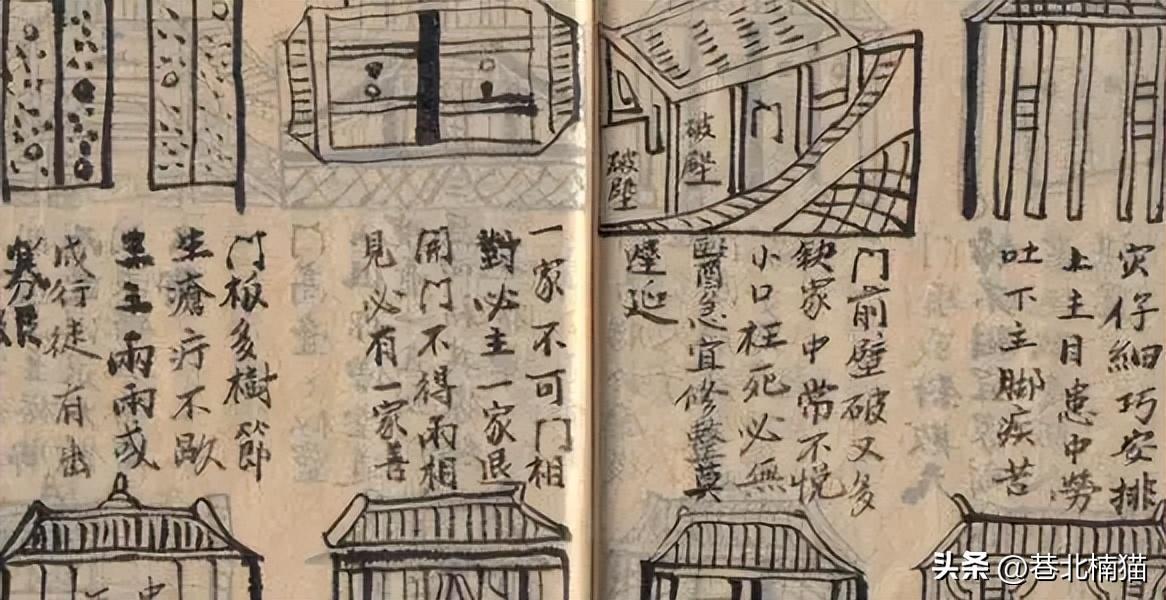 破壁
破壁
门
灾仔細巧安排
上主目患中勞
吐下主脚疾苦
门前壁破又多
缺家中常不悦
小口枉死必無
醫急宜修整莫
遲延
一家不可门相
對必主一家退
開门不得兩相
見必有一家善
门板多樹節
生瘡疔不歇
主兩兩或
成行徒有出
头条 @巷北楠猫